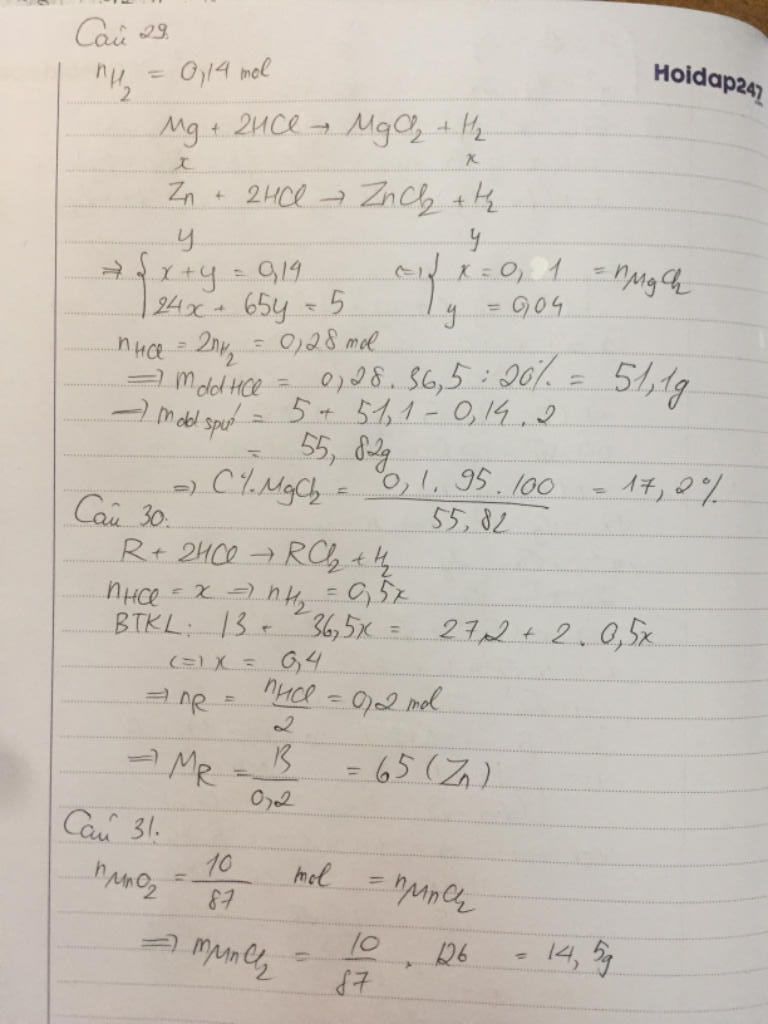 Câu 29.
Hoidap247
nH₂ = 0,14 mol
Mg + 2HCl → MgCl₂ + H₂
x x
Zn + 2HCl → ZnCl₂ + H₂
y y
=> { x + y = 0,14 <=> { x = 0,1 = nMgCl₂
24x + 65y = 5 y = 0,04
nHCl = 2nH₂ = 0,28 mol
=> mddHCl = 0,28 . 36,5 : 20% = 51,1g
=> mdd spư = 5 + 51,1 - 0,14 . 2
= 55,82g
=> C% MgCl₂ = 0,1 . 95 . 100 / 55,82 = 17,2%
Câu 30:
R + 2HCl → RCl₂ + H₂
nHCl = x => nH₂ = 0,5x
BTKL: 13 + 36,5x = 27,2 + 2 . 0,5x
<=> x = 0,4
=> nR = nHCl / 2 = 0,2 mol
=> MR = 13 / 0,2 = 65 (Zn)
Câu 31.
nMnO₂ = 10 / 87 mol = nMnCl₂
=> mMnCl₂ = 10 / 87 . 126 = 14,5g